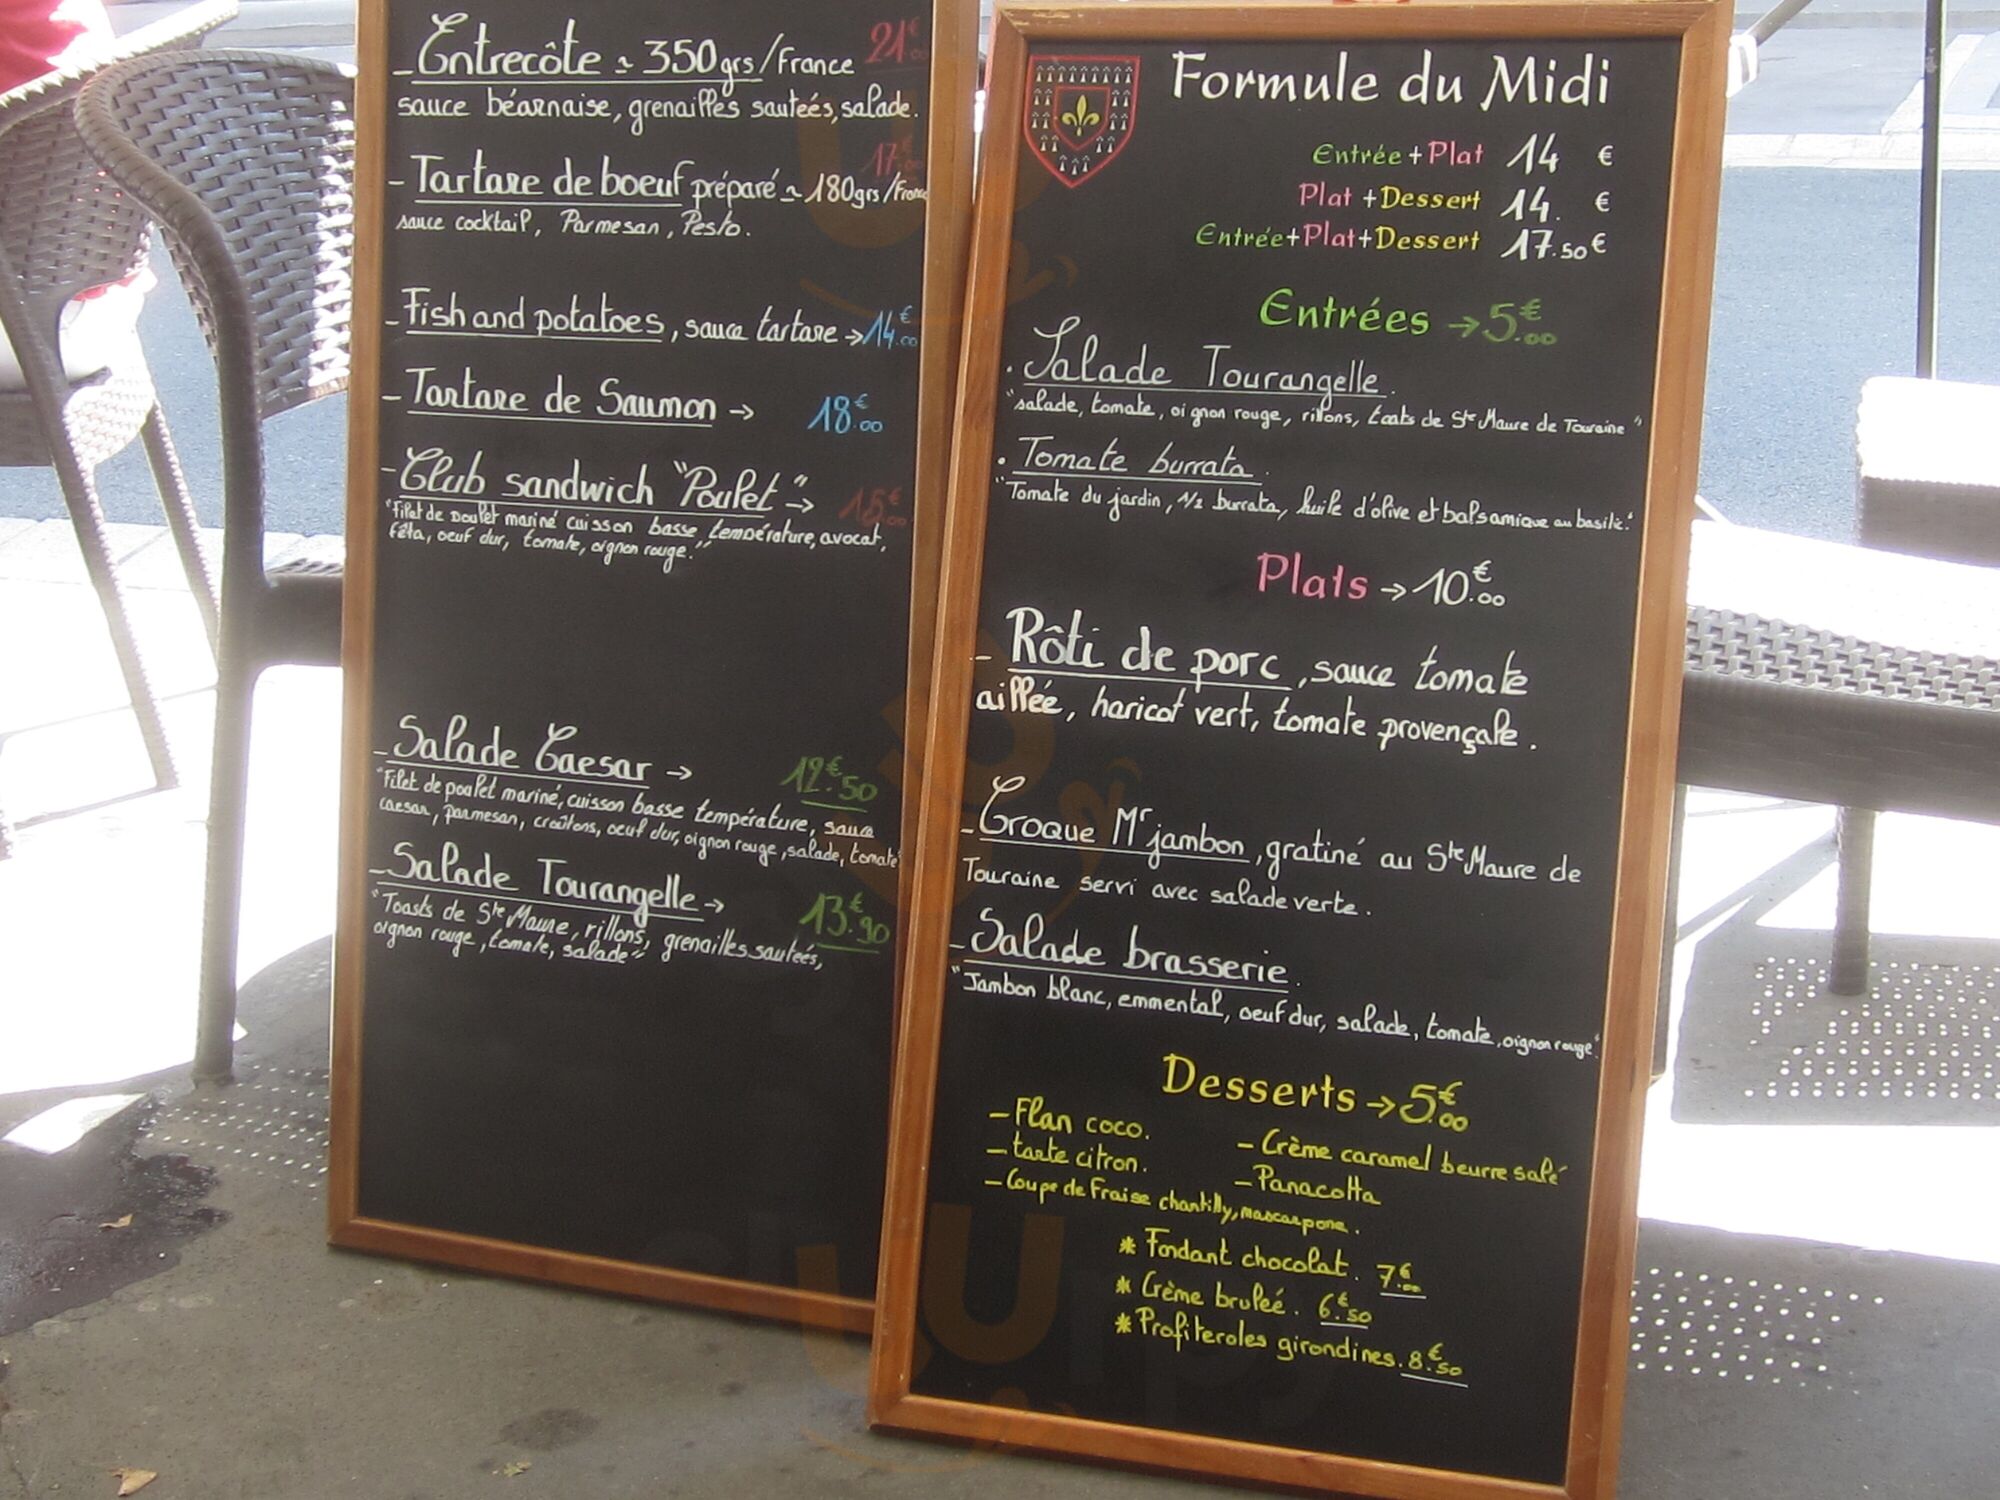 - Entrecôte ~ 350grs/France 21€.00
sauce béarnaise, grenailles sauteés, salade.
- Tartare de boeuf préparé ~ 180grs/France 17€.00
sauce cocktail, Parmesan, Pesto.
- Fish and potatoes, sauce tartare → 14€.00
- Tartare de Saumon → 18€.00
- Club sandwich "Poulet" → 15€.00
"Filet de poulet mariné cuisson basse température, avocat,
fêta, oeuf dur, tomate, oignon rouge."
- Salade Caesar → 12€.50
"Filet de poulet mariné, cuisson basse température, sauce
caesar, parmesan, croûtons, oeuf dur, oignon rouge, salade, tomate"
- Salade Tourangelle → 13€.90
"Toasts de Ste Maure, rillons, grenailles sauteés,
oignon rouge, tomate, salade"
Formule du Midi
Entrée+Plat 14 €
Plat+Dessert 14. €
Entrée+Plat+Dessert 17.50€
Entrées → 5€.00
. Salade Tourangelle.
"salade, tomate, oignon rouge, rillons, toats de Ste Maure de Touraine"
. Tomate burrata.
"Tomate du jardin, 1/2 burrata, huile d'olive et balsamique au basilic."
Plats → 10€.00
- Rôti de porc, sauce tomate
aillée, haricot vert, tomate provençale.
- Croque Mr jambon, gratiné au Ste Maure de
Touraine servi avec salade verte.
- Salade brasserie.
"Jambon blanc, emmental, oeuf dur, salade, tomate, oignon rouge"
Desserts → 5€.00
- Flan coco.
- Crème caramel beurre salé
- tarte citron.
- Panacotta
- Coupe de Fraise chantilly, mascarpone.
* Fondant chocolat. 7€.00
* Crème bruleé. 6€.50
* Profiteroles girondines. 8€.50